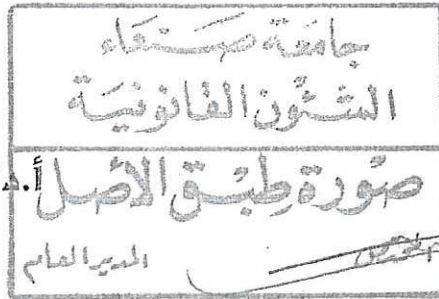 جامعة صنعاء
الشئون القانونية
صورة طبق الأصل
أ.د
المختص
المدير العام